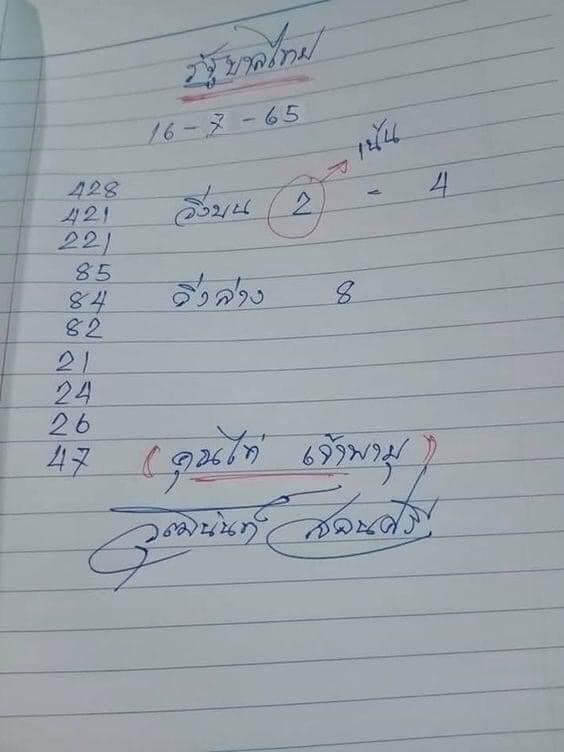 รัฐบาลไทย
16-7-65
เน้น
428
421 วิ่งบน 2 - 4
221
85
84 วิ่งล่าง 8
82
21
24
26
47 (คุณไก่ เจ้าพายุ)
วุฒินันท์ สอนศรี